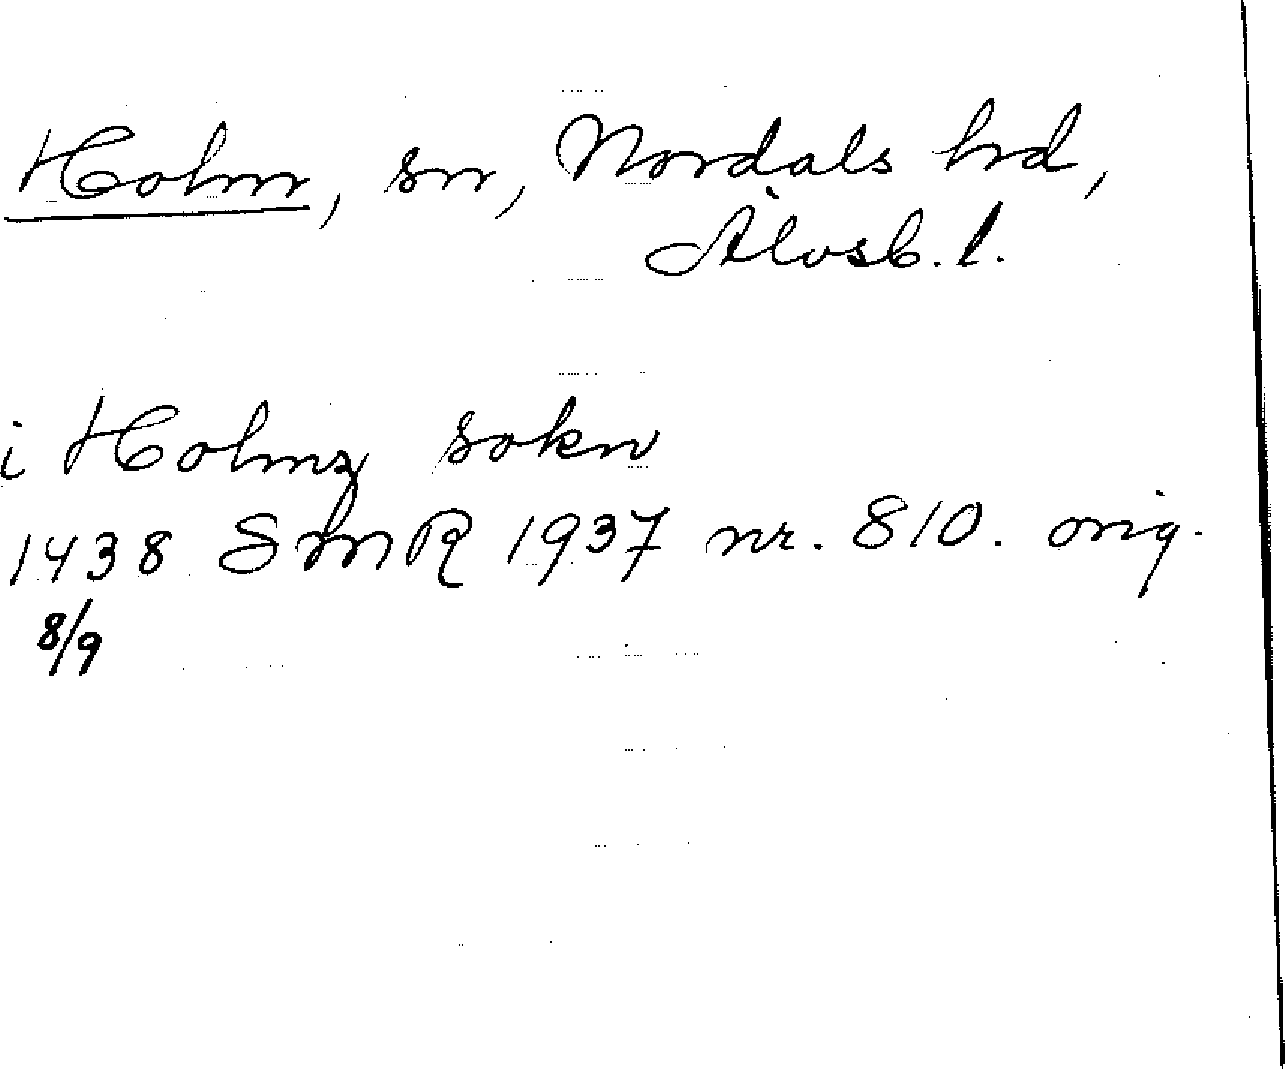 Holm, sn, Nordals hrd,
Älvsb. l.
i Holmz sokn
1438 SMR 1937 nr. 810. orig.
8/9